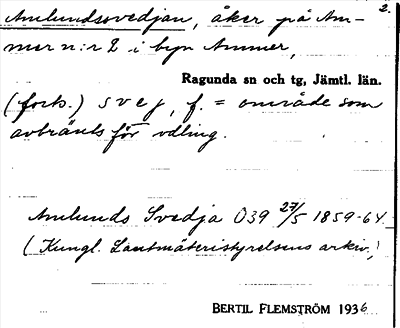 2.
Amlundssvedjan, åker på Am-
mer n:r 2 i byn Ammer,
Ragunda sn och tg, Jämtl. län.
(forts.) svej, f. = område som
avbränts för odling.
Amlunds Svedja 039 27/5 1859-64
(Kungl. Lantmäteristyrelsens arkiv.)
BERTIL FLEMSTRÖM 1936